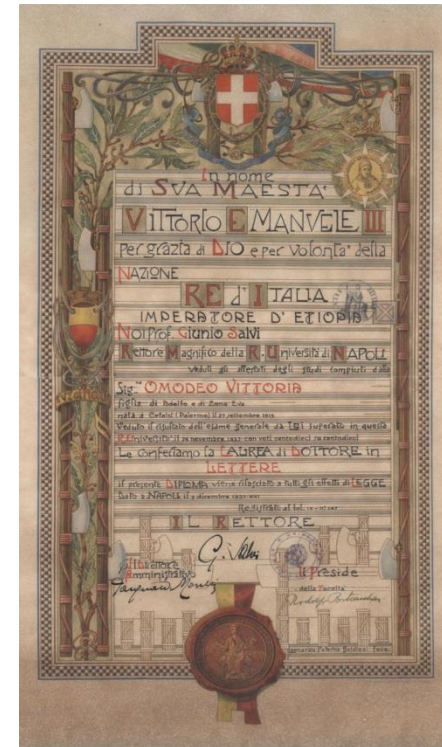 In nome
di SVA MAESTA'
VITTORIO EMANVELE III
per grazia di DIO e per Volontà della
NAZIONE
RE d'ITALIA
IMPERATORE D'ETIOPIA
NOI Prof. Giunio Salvi
Rettore Magnifico della R. Università di NAPOLI
veduti gli attestati degli studi compiuti dalla
Sig.na OMODEO VITTORIA
figlia di Adolfo e di Zona Eva
nata a Cefalù (Palermo) il 21 settembre 1915
Veduto il risultato dell'esame generale da LEI superato in questa
R. Università il 29 novembre 1937 con voti centodieci su centodieci
Le conferiamo la LAUREA di DOTTORE in
LETTERE
il presente DIPLOMA viene rilasciato a tutti gli effetti di LEGGE
Dato a NAPOLI il 9 dicembre 1937
Registrato al
IL RETTORE
G. Salvi
Il Direttore
Amministrativo
Il Preside
della Facoltà